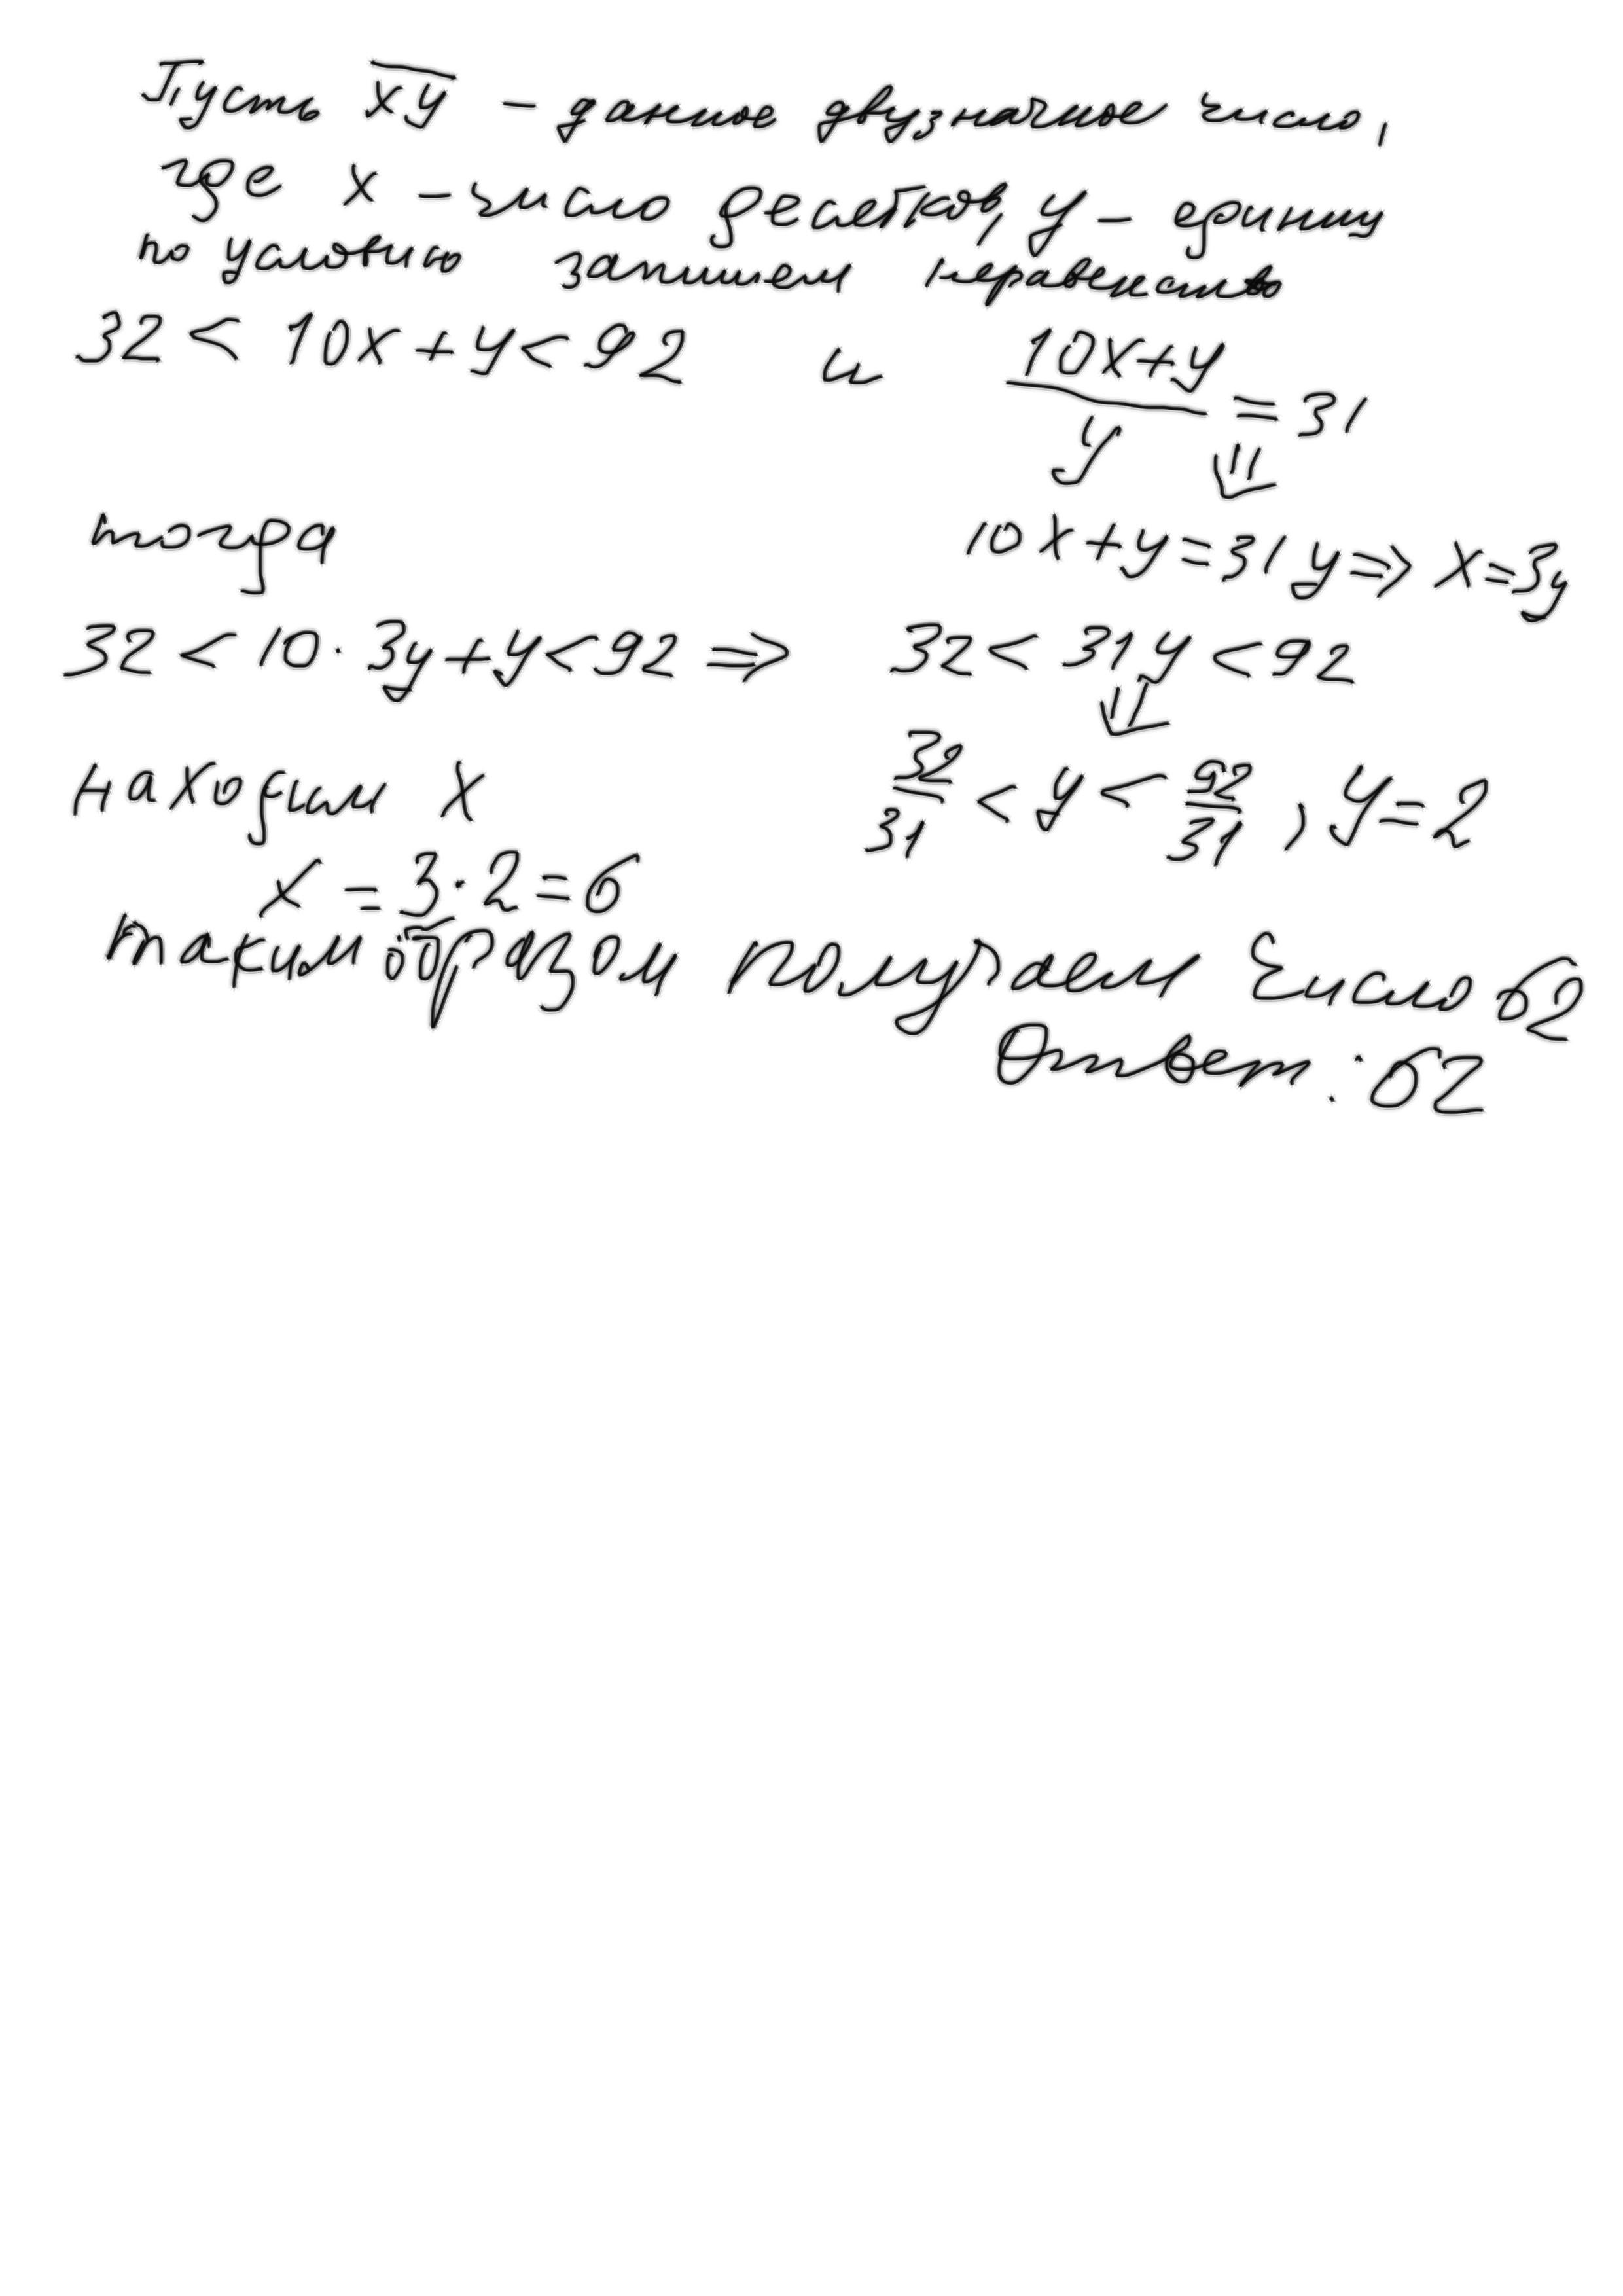 Пусть xy – данное двузначное число,
где x – число десятков, y – единиц
по условию запишем неравенство
32 < 10x + y < 92 и (10x+y)/y = 31
⇓
тогда 10x + y = 31y ⇒ x = 3y
32 < 10 · 3y + y < 92 ⇒ 32 < 31y < 92
⇓
находим x 32/31 < y < 92/31, y = 2
x = 3 · 2 = 6
таким образом получаем число 62
Ответ: 62